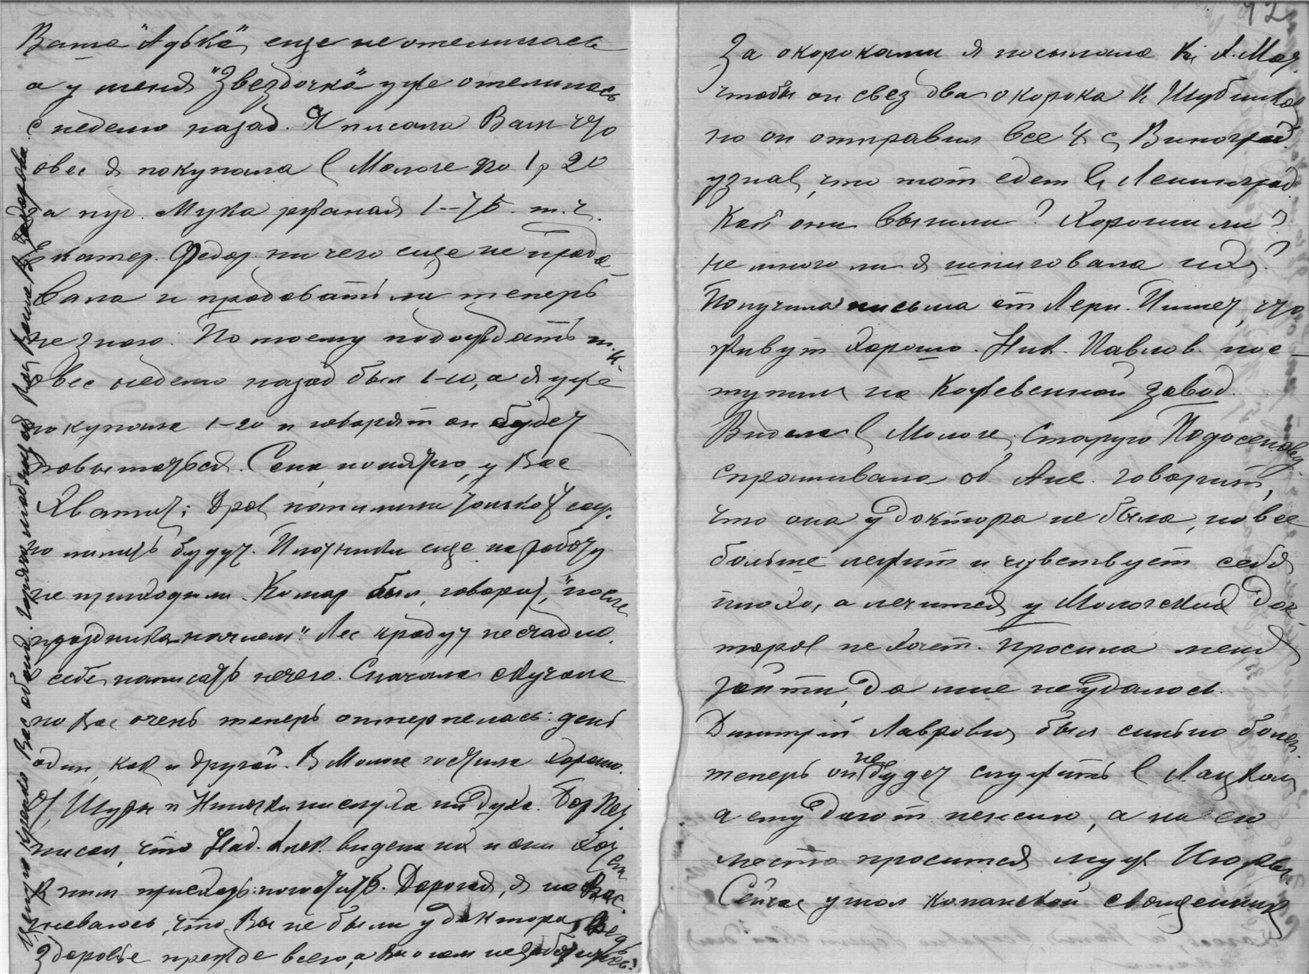 Ваша "Адька" еще не отелилась
а у меня "Звездочка" уже отелилась
с неделю назад. Я писала Вам что
овес я покупала в Мологе по 1 р 20
за пуд. Мука ржаная 1-75. т.ч.
Екатер. Федор. ничего еще не прода-
вала и продавать ли теперь
не знаю. По моему подождать т.к.
овес неделю назад был 1-10, а я уже
покупала 1-20 и говорят он будет
повышаться. Сена, понятно, у Вас
хватит; дров напилили только
но пилить будут. Плотники еще на работу
не приходили. Комар был, говорит, "после
праздника начнем". Лес крадут нещадно.
О себе написать нечего. Сначала скучала
по Вас очень теперь оттерпелась: день
один, как и другой. В Мологе гостила хорошо.
От Шуры и Нины ни слуха ни духа. Бор
писал, что Над. Алек. видела их и они хотят
к ним приехать погостить. Дорогая, я на Вас
гневаюсь, что Вы не были у доктора, Ведь
Здоровье прежде всего, а Вы о нем не заботитесь!
Целую крепко Вас обоих. Горячо любящая Вас Ваша В.
92
За окороками я посылала к А. Мат.
чтобы он свез два окорока к
но он отправил все 4 с Виноград
узнав, что тот едет в Ленинград
Как они вышли? Хороши ли?
не много ли я шпиговала их?
Получила письма от Лери. Пишет, что
живут хорошо. Ник. Павлов. пос-
тупил на Кожевенный завод.
Видела в Мологе, старую
спрашивала об Анс. говорит,
что она у доктора не была, но все
больше лежит и чувствует себя
плохо, а лечится у Мологских док-
торов не хочет. Просила меня
зайти, да мне не удалось.
Дмитрий Лаврович был сильно болен,
теперь он не будет служить в
а ему дают пенсию, а на его
место просится муж
Сейчас ушол священник